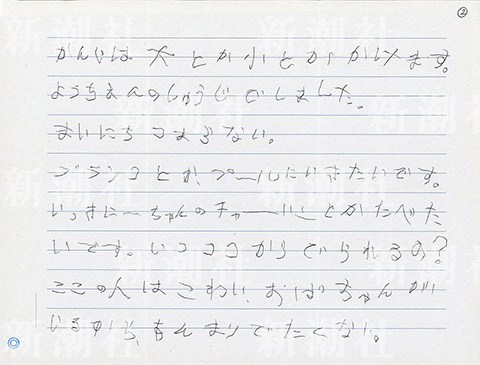 ②
かんじは大とか小とかかけます。
ようちえんのしゅうじでしました。
まいにちつまらない。
ブランコとかプールにいきたいです。
いっきにーちゃんのチャーハンとかたべた
いです。いつココからでられるの?
ここの人はこわいおばちゃんが
いるから、あんまりでたくない。
新潮社